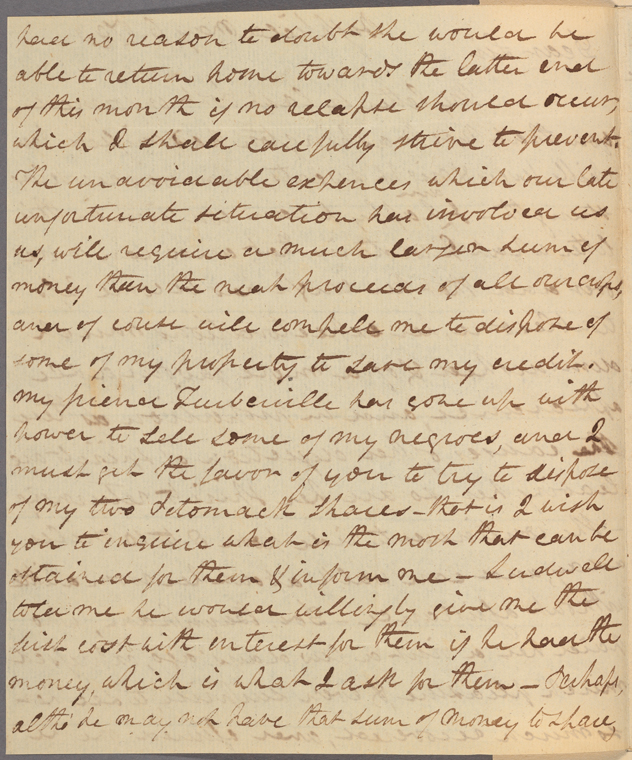 had no reason to doubt she would be
able to return home towards the latter end
of this month if no relapse should occur,
which I shall carefully strive to prevent.
The unavoidable expences which our late
unfortunate situation has involved us
us, will require a much larger sum of
money than the neat proceeds of all our crops,
and of couse will compell me to dispose of
some of my property to save my credit.
my friend Turberville has gone up with
power to sell some of my negroes, and I
must get the favor of you to try to dispose
of my two Potomack Shares - that is I wish
you to inquire what is the most that can be
obtained for them & inform me - Ludwell
told me he would willingly give me the
first cost with interest for them if he had the
money, which is what I ask for them - Perhaps,
altho' he may not have that sum of money to spare,